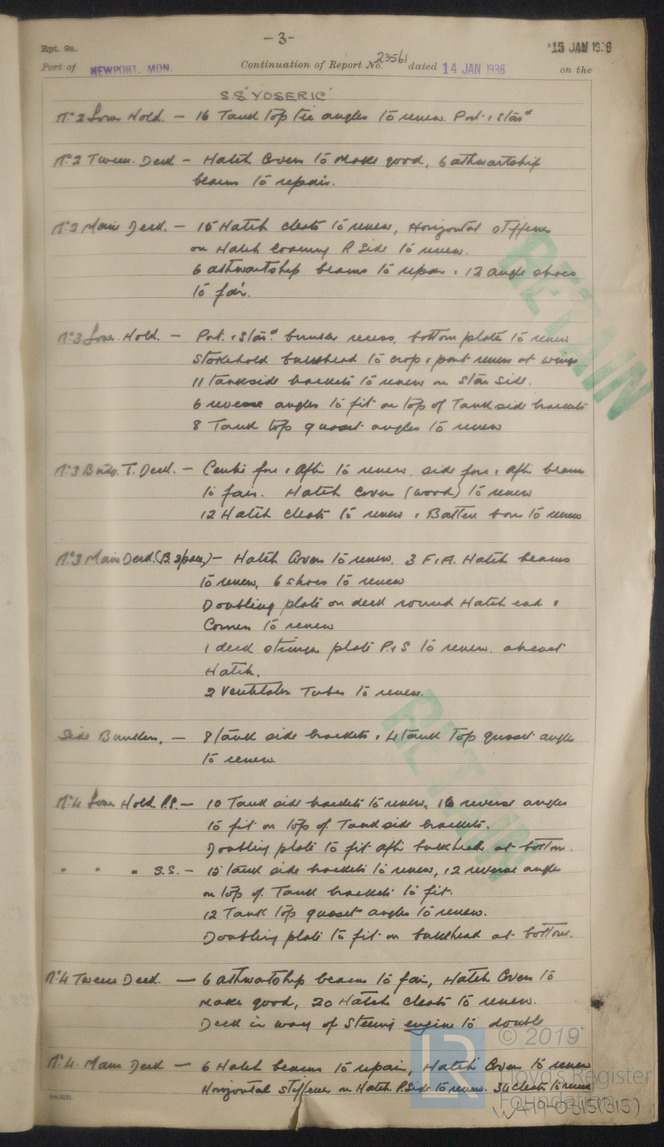 - 3 -
Rpt. 9a.
15 JAN 1936
Port of NEWPORT, MON. Continuation of Report No. 23561 dated 14 JAN 1936 on the
S.S. "YOSERIC"
No 2 Lower Hold. — 16 Tank top tie angles to renew Port & Stard
No 2 Tween Deck — Hatch Covers to make good, 6 athwartship
beams to repair.
No 2 Main Deck. — 15 Hatch cleats to renew, Horizontal stiffener
on Hatch Coaming P. Side to renew.
6 athwartship beams to repair, 12 angle shoes
to fair.
No 3 Lower Hold. — Port & Starbd bunker recess, bottom plate to renew
Stokehold bulkhead to crop & part renew at wings
11 tankside brackets to renew on Star Side.
6 reverse angles to fit on top of Tank side brackets
8 Tank top gusset angles to renew
No 3 T. Deck. — Centre fore & afters to renew, side fore & after beams
to fair. Hatch Covers (wood) to renew
12 Hatch cleats to renew & Batten bars to renew
No 3 Main Deck (B. space) — Hatch Covers to renew, 3 F. & A. Hatch beams
to renew, 6 shoes to renew
Doubling plate on deck round Hatch end &
Corners to renew
1 deck stringer plate P. & S to renew, abreast
Hatch.
2 Ventilator Tubes to renew.
Side Bunkers. — 8 tank side brackets & 4 tank top gusset angles
to renew
No 4 Lower Hold P.S. — 10 Tank side brackets to renew, 16 reverse angles
to fit on top of Tank side brackets.
Doubling plate to fit after bulkhead at bottom.
" " " S.S. — 15 tank side brackets to renew, 12 reverse angles
on top of Tank brackets to fit.
12 Tank top gusset angles to renew.
Doubling plate to fit on bulkhead at bottom.
No 4 Tween Deck — 6 athwartship beams to fair, Hatch Covers to
make good, 20 Hatch cleats to renew.
Deck in way of Steering engine to double
No 4. Main Deck — 6 Hatch beams to repair, Hatch Covers to renew
Horizontal stiffener on Hatch P. Side to renew. 34 cleats to renew
RETAIN
RETAIN
© 2019
LR
Lloyd's Register
Foundation
W217-0315(3/5)